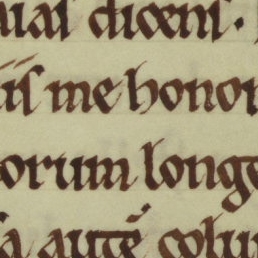 uial dicens .
iis me honor
orum longe
a autē colu